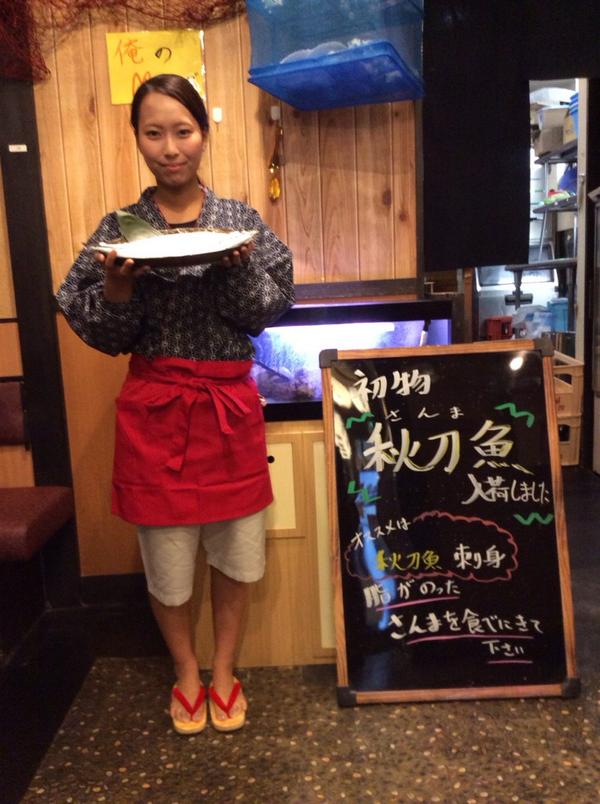 俺の
初物
さんま
秋刀魚
入荷しました
オススメは
秋刀魚 刺り身
脂がのった
さんまを食べにきて
下さい